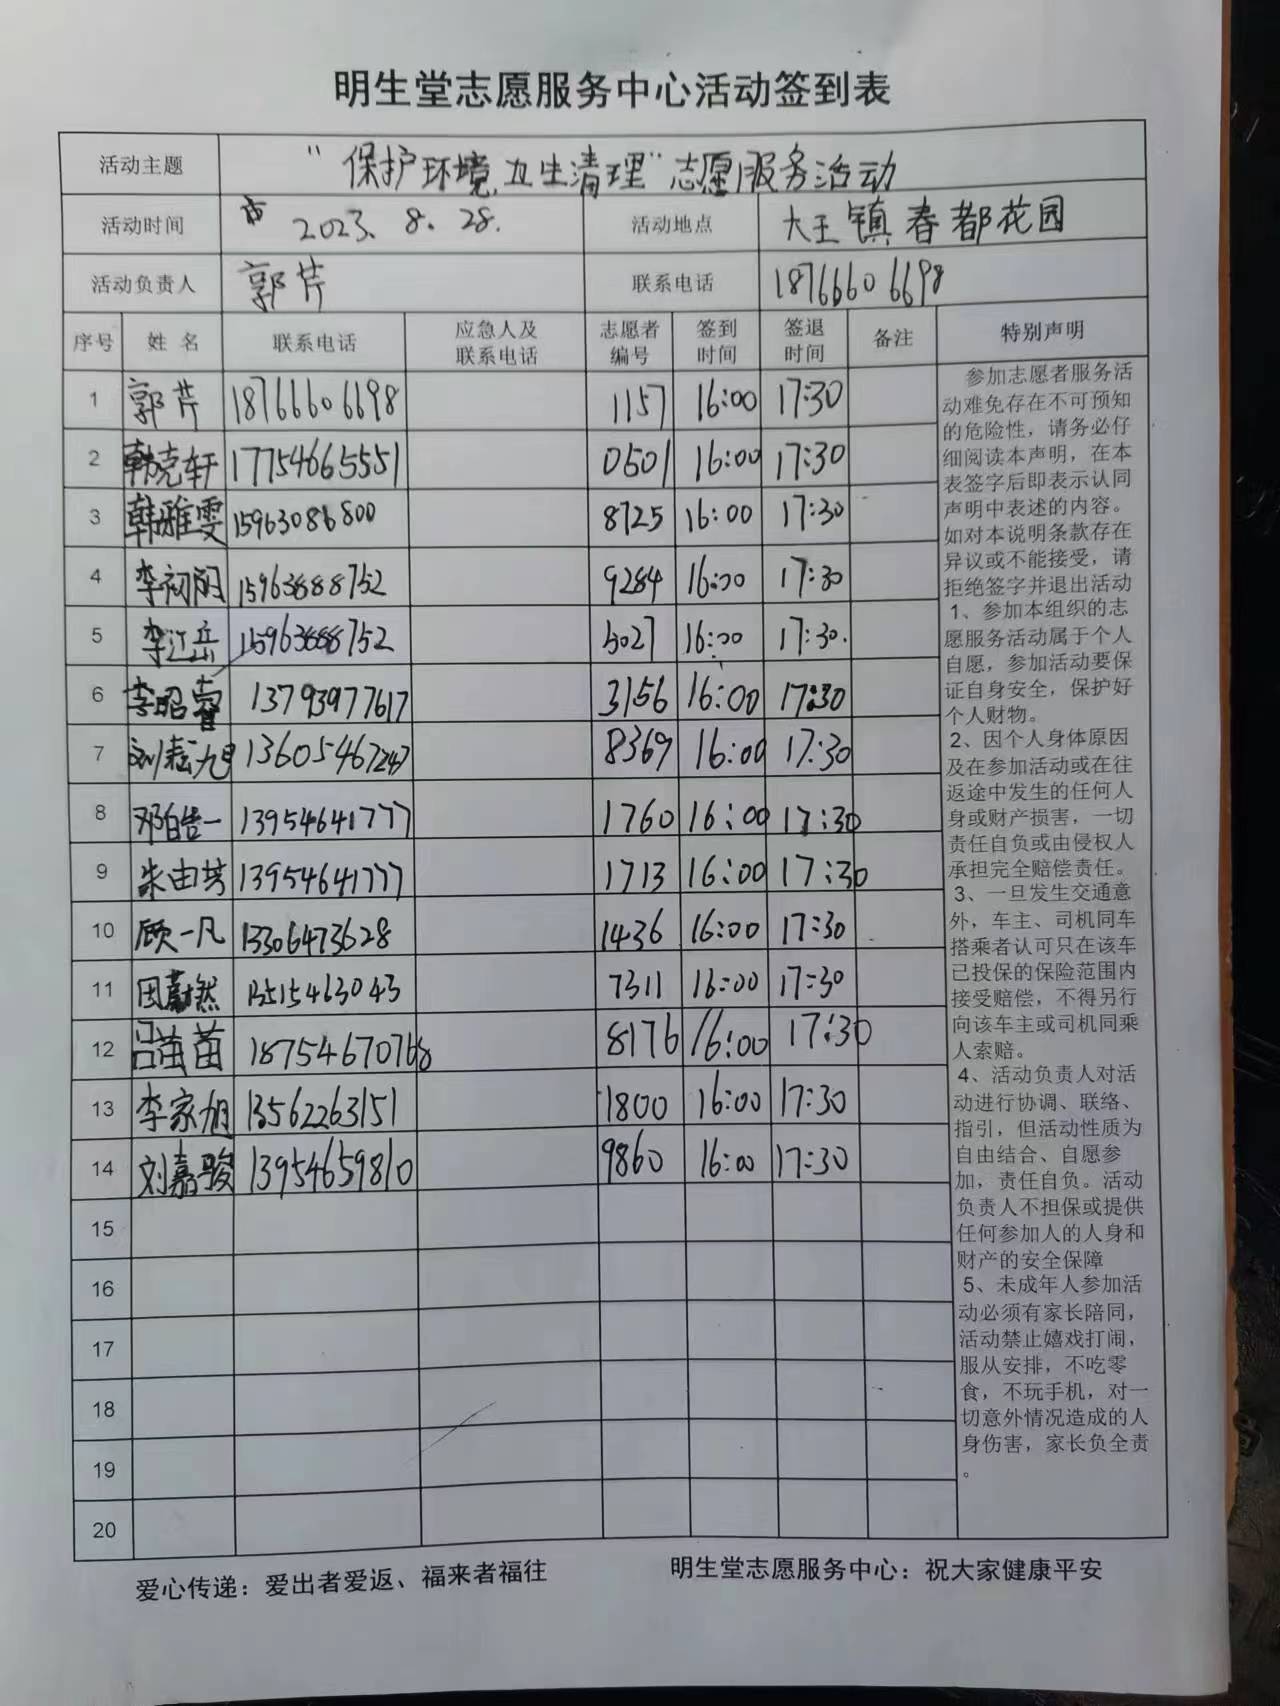 明生堂志愿服务中心活动签到表
活动主题 “保护环境卫生清理”志愿服务活动
活动时间 2023.8.28. 活动地点 大王镇春都花园
活动负责人 郭芹 联系电话 18766606698
序号 姓名 联系电话 应急人及联系电话 志愿者编号 签到时间 签退时间 备注 特别声明
1 郭芹 18766606698 1157 16:00 17:30
2 韩克轩 17754665551 0601 16:00 17:30
3 韩雅雯 15963086800 8725 16:00 17:30
4 李初阳 15963888752 9284 16:00 17:30
5 李江岳 15963888752 5027 16:00 17:30.
6 李昭睿 13793977617 3156 16:00 17:30
7 刘耘旭 13605467247 8369 16:00 17:30
8 邓皓一 13954641777 1760 16:00 17:30
9 朱由芳 13954641777 1713 16:00 17:30
10 顾一凡 13306473628 1436 16:00 17:30
11 田蔚然 13515463043 7311 16:00 17:30
12 吕苗苗 18754670768 8176 16:00 17:30
13 李家旭 13562263151 1800 16:00 17:30
14 刘嘉骏 13954659810 9860 16:00 17:30
15
16
17
18
19
20
参加志愿者服务活
动难免存在不可预知
的危险性，请务必仔
细阅读本声明，在本
表签字后即表示认同
声明中表述的内容。
如对本说明条款存在
异议或不能接受，请
拒绝签字并退出活动
1、参加本组织的志
愿服务活动属于个人
自愿，参加活动要保
证自身安全，保护好
个人财物。
2、因个人身体原因
及在参加活动或在往
返途中发生的任何人
身或财产损害，一切
责任自负或由侵权人
承担完全赔偿责任。
3、一旦发生交通意
外，车主、司机同车
搭乘者认可只在该车
已投保的保险范围内
接受赔偿，不得另行
向该车主或司机同乘
人索赔。
4、活动负责人对活
动进行协调、联络、
指引，但活动性质为
自由结合、自愿参
加，责任自负。活动
负责人不担保或提供
任何参加人的人身和
财产的安全保障
5、未成年人参加活
动必须有家长陪同，
活动禁止嬉戏打闹，
服从安排，不吃零
食，不玩手机，对一
切意外情况造成的人
身伤害，家长负全责
。
爱心传递：爱出者爱返、福来者福往 明生堂志愿服务中心：祝大家健康平安